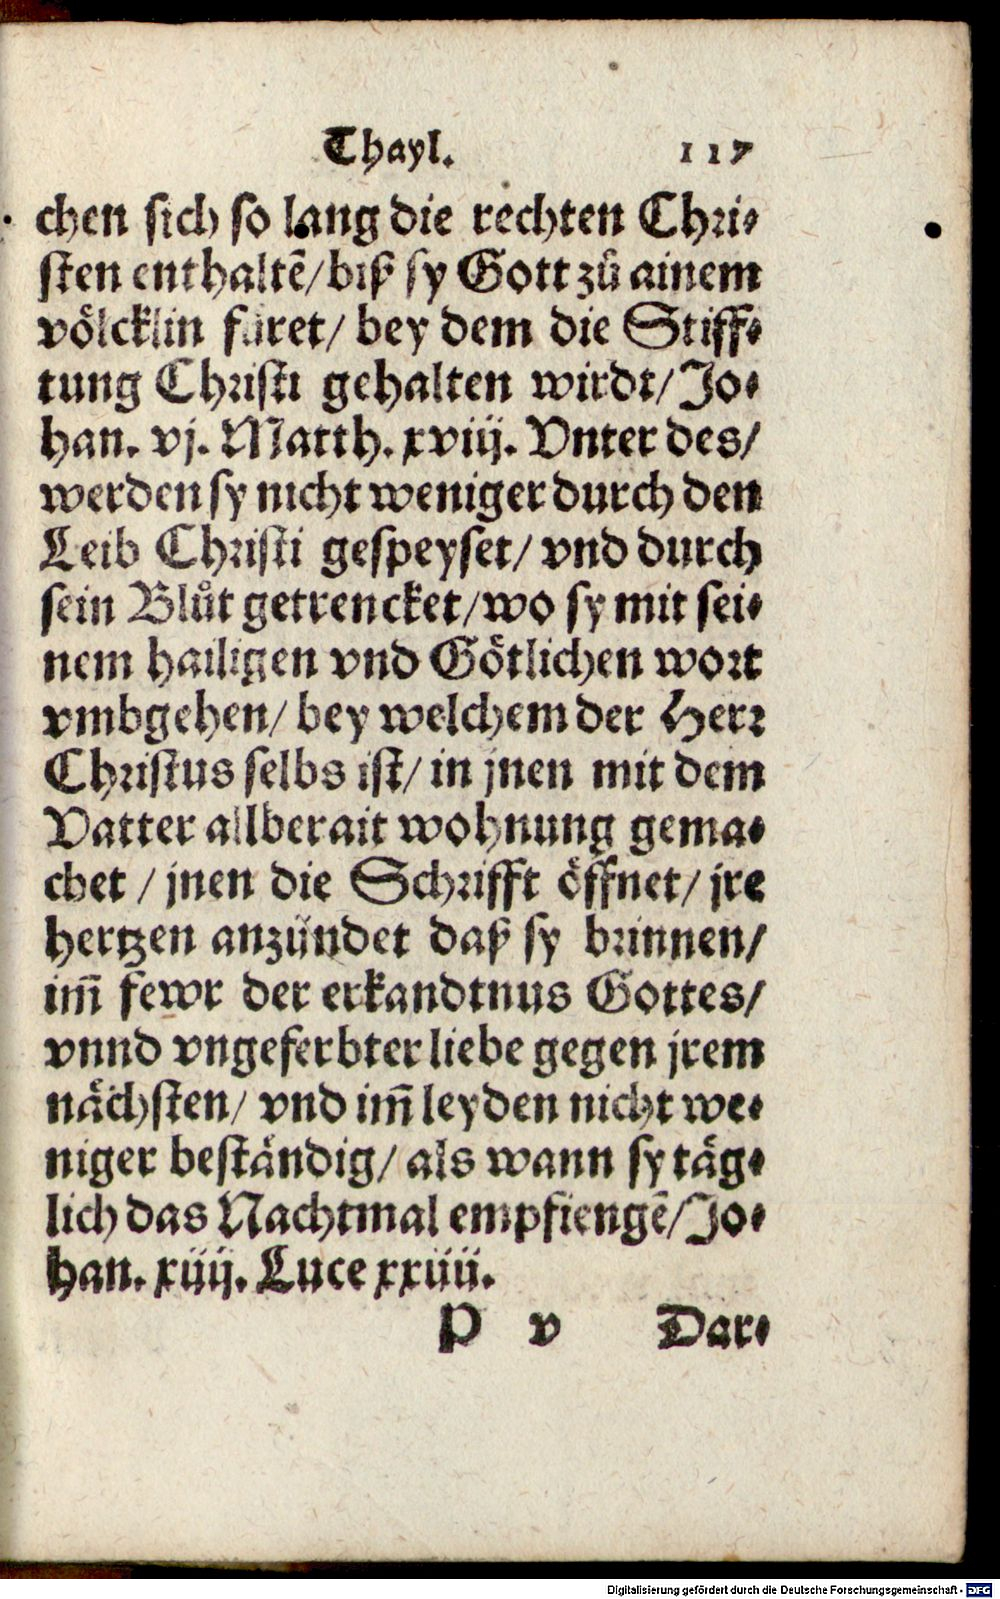 Thayl. 117
chen sich so lang die rechten Chri-
sten enthaltē/biß sy Gott zů ainem
völcklin füret/ bey dem die Stiff-
tung Christi gehalten wirdt/Jo-
han. vj. Matth. xviij. Vnter des/
werden sy nicht weniger durch den
Leib Christi gespeyset/ vnd durch
sein Blůt getrencket/wo sy mit sei-
nem hailigen vnd Götlichen wort
vmbgehen/ bey welchem der Herr
Christus selbs ist/ in jnen mit dem
Vatter allberait wohnung gema-
chet / jnen die Schrifft öffnet/ jre
hertzen anzündet daß sy brinnen/
im̄ fewr der erkandtnus Gottes/
vnnd vngeferbter liebe gegen jrem
nächsten/ vnd im̄ leyden nicht we-
niger beständig/ als wann sy täg-
lich das Nachtmal empfiengē/Jo-
han. xiiij. Luce xxiiii.
P v Dar-
Digitalisierung gefördert durch die Deutsche Forschungsgemeinschaft - DFG